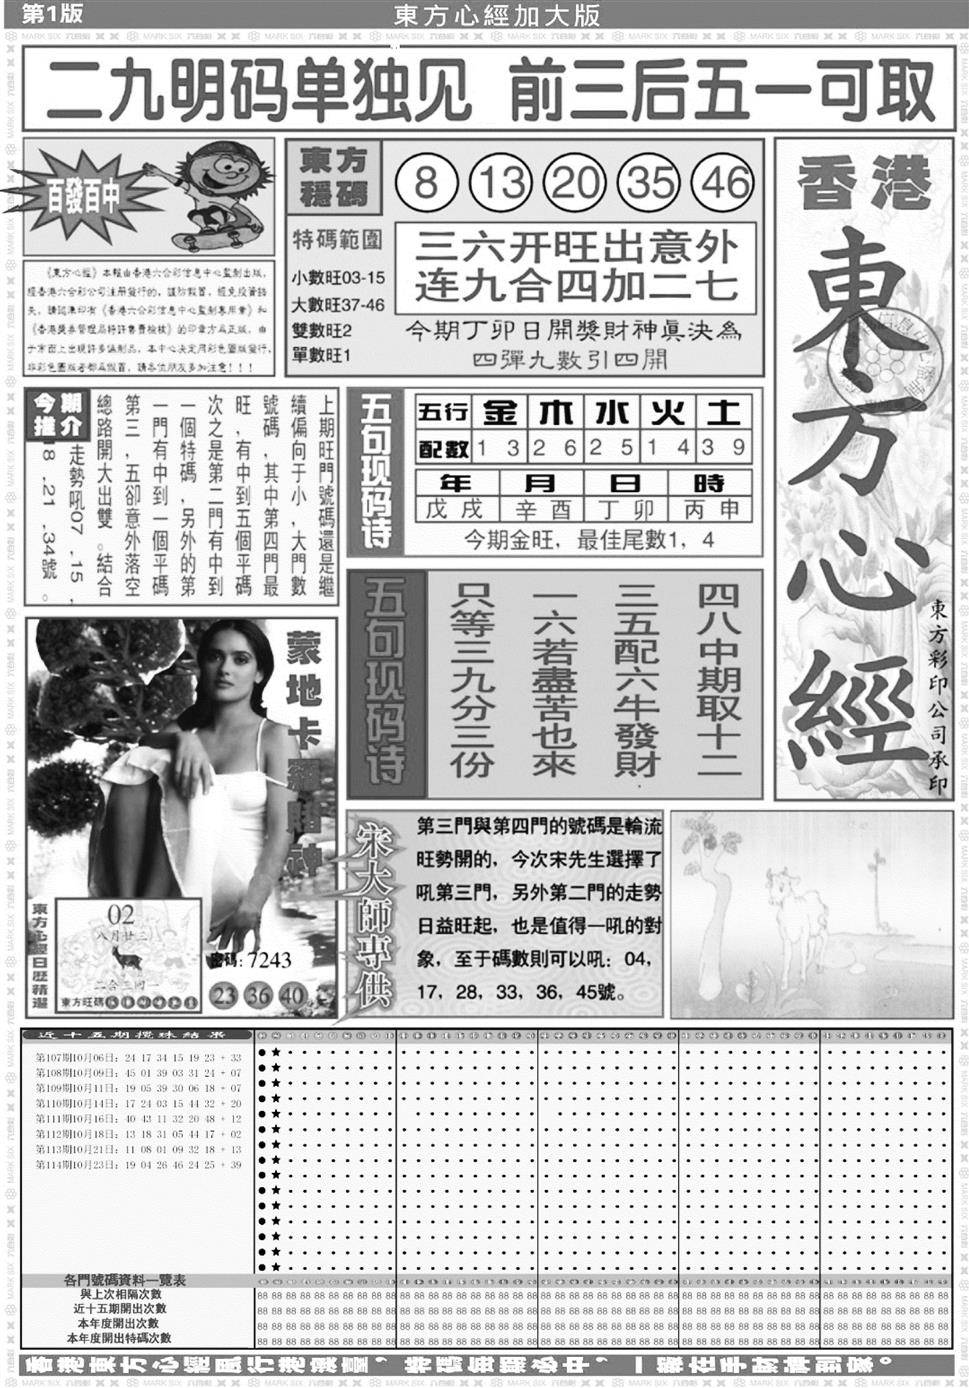 第1版
東方心經加大版
二九明码单独见 前三后五一可取
百發百中
《東方心經》本報由香港六合彩信息中心監制出版，
經香港六合彩公司注册發行的，謹防假冒，經免投資損
失，請認準印有《香港六合彩信息中心監制專用章》和
《香港獎券管理局特許售賣檢核》的印章方爲正版，由
于市面上出現許多僞制品，本中心决定用彩色圖版發行，
非彩色圖版者都爲假冒，請各位朋友多加注意！！！
東方
穩碼
8 13 20 35 46
特碼範圍
小數旺03-15
大數旺37-46
雙數旺2
單數旺1
三六开旺出意外
连九合四加二七
今期丁卯日開獎財神眞決為
四彈九數引四開
香港
東方心經
東方彩印公司承印
今期
推介
上期旺門號碼還是繼
續偏向于小，大門數
號碼，其中第四門最
旺，有中到五個平碼
次之是第二門有中到
一個特碼，另外的第
一門有中到一個平碼
第三，五卻意外落空
總路開大出雙。結合
走勢吼07，15，
18．21．34號。
五句现码诗
五行 金 木 水 火 土
配數 1 3 2 6 2 5 1 4 3 9
年 月 日 時
戊戌 辛酉 丁卯 丙申
今期金旺，最佳尾數1，4
五句现码诗
四八中期取十二
三五配六牛發財
一六若盡苦也來
只等三九分三份
蒙地卡羅賭神
東方心經日歷精選
02
八月廿三
二合三四一
東方旺碼
密碼：7243
23 36 40
宋大師專供
第三門與第四門的號碼是輪流
旺勢開的，今次宋先生選擇了
吼第三門，另外第二門的走勢
日益旺起，也是值得一吼的對
象，至于碼數則可以吼：04，
17，28，33，36，45號。
近十五期攪珠結果
第107期10月06日：24 17 34 15 19 23 + 33
第108期10月09日：45 01 39 03 31 24 + 07
第109期10月11日：19 05 39 30 06 18 + 07
第110期10月14日：17 24 03 15 44 32 + 20
第111期10月16日：40 43 11 32 20 48 + 12
第112期10月18日：13 18 31 05 44 17 + 02
第113期10月21日：11 08 01 09 32 18 + 13
第114期10月23日：19 04 26 46 24 25 + 39
各門號碼資料一覽表
與上次相隔次數
近十五期開出次數
本年度開出次數
本年度開出特碼次數
香港東方心經風行港澳臺，特碼每期必中，一版在手財神到家。